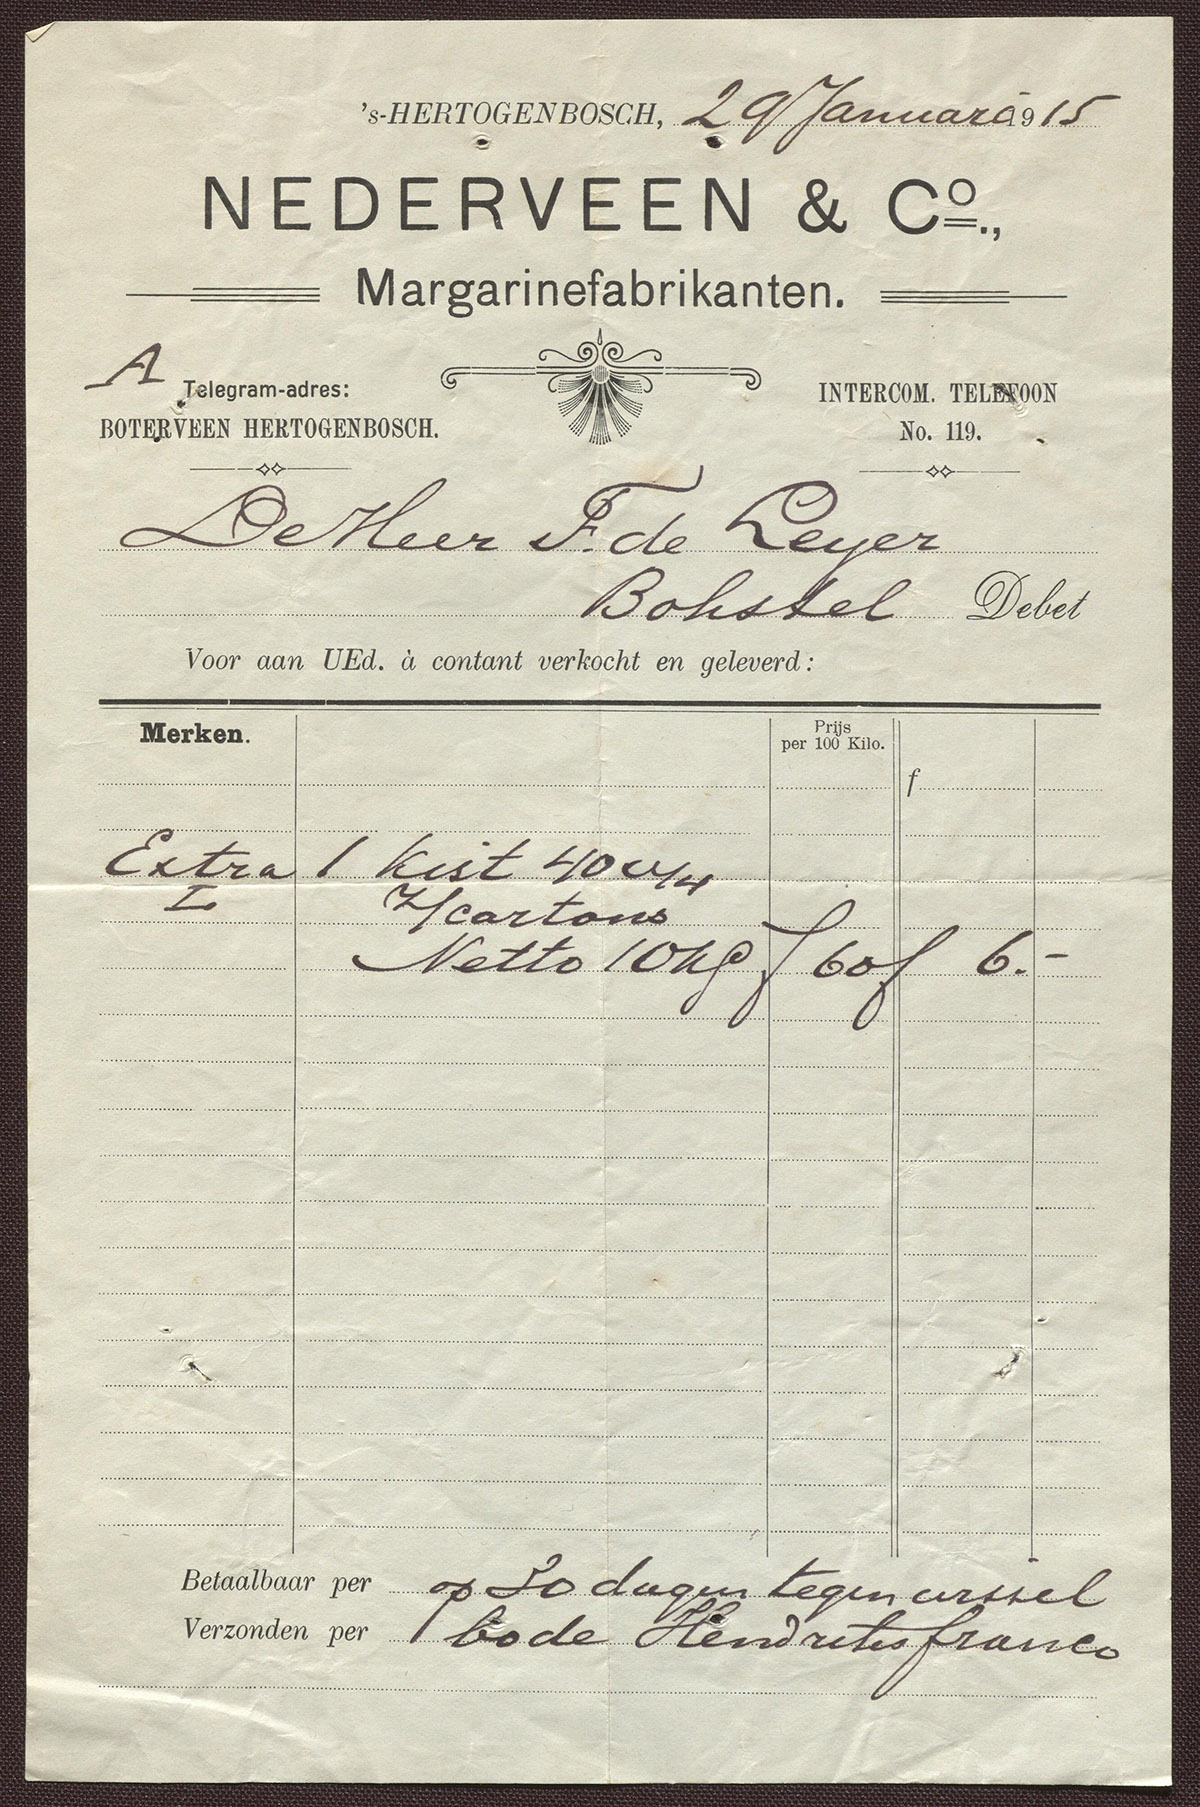 's-HERTOGENBOSCH, 29 Januari 1915
NEDERVEEN & Co.,
Margarinefabrikanten.
A
Telegram-adres:
BOTERVEEN HERTOGENBOSCH.
INTERCOM. TELEFOON
No. 119.
De Heer F. de Leyer
Bohstel Debet
Voor aan UEd. à contant verkocht en geleverd:
Merken. Prijs per 100 Kilo.
f
Extra 1 kist 40 1/4
I cartons
Netto 10 kg f 60 f 6.-
Betaalbaar per op 30 dagen tegen wissel
Verzonden per bode franco